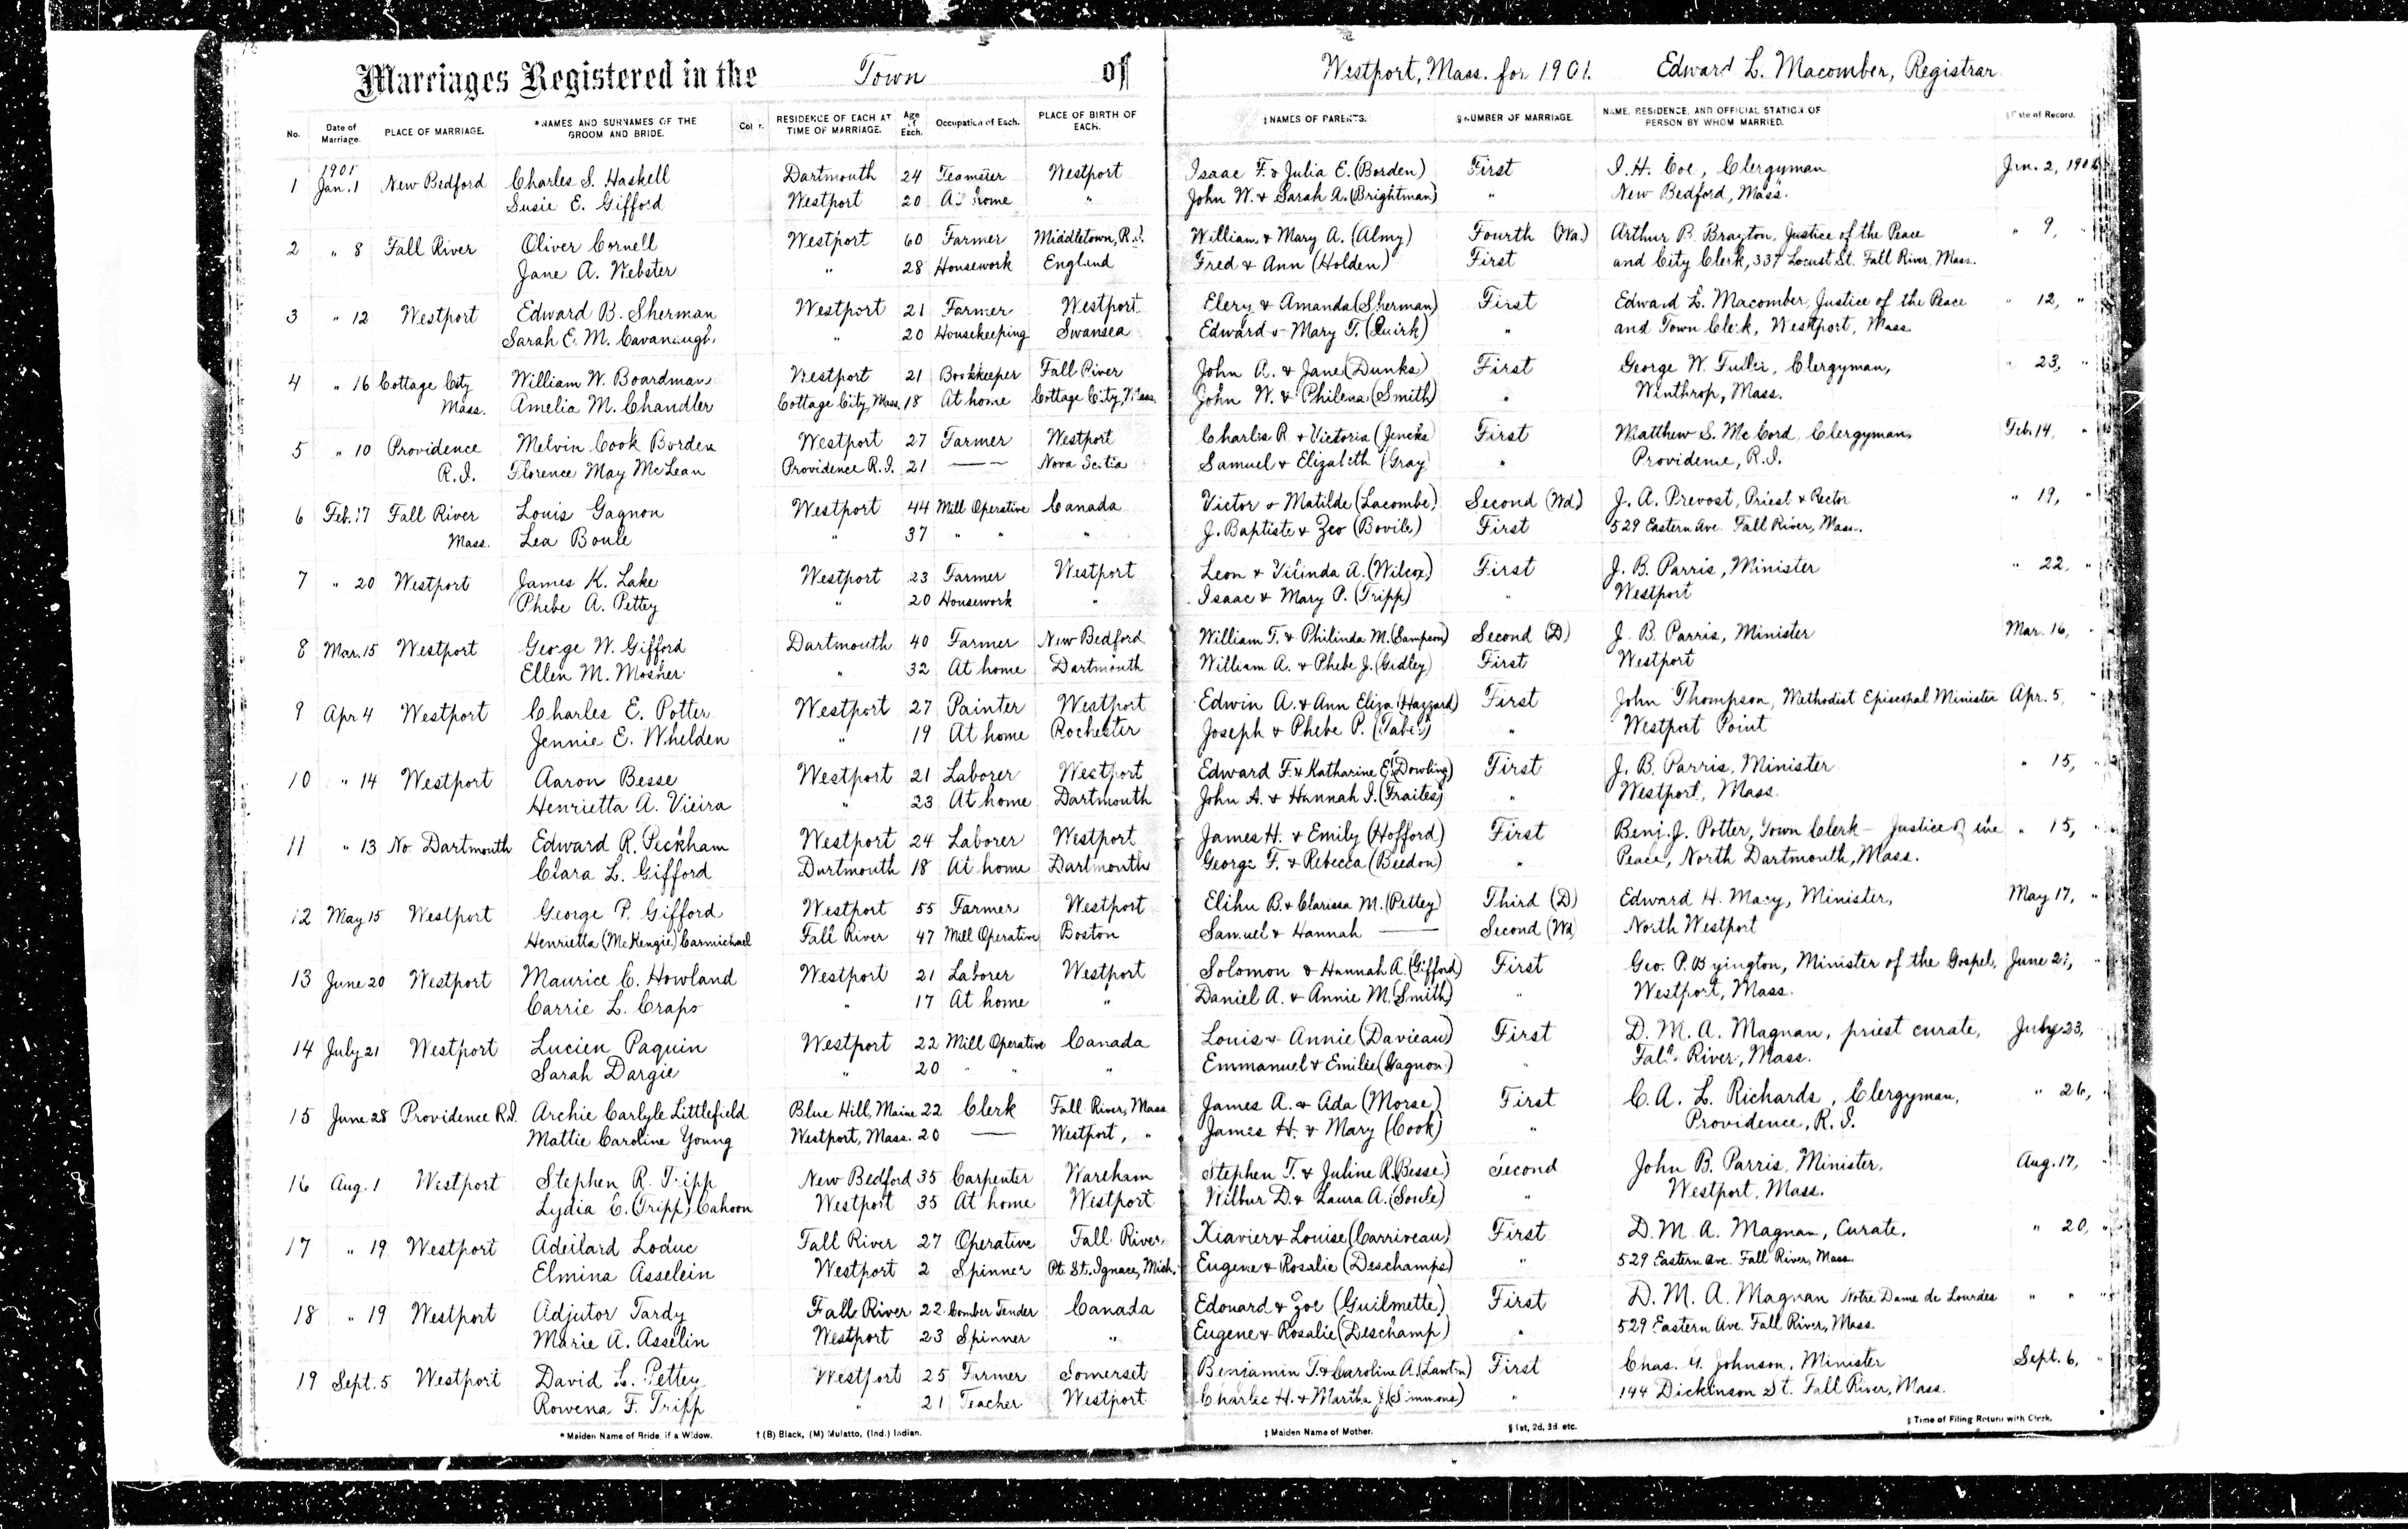 Marriages Registered in the Town of Westport, Mass. for 1901. Edward L. Macomber, Registrar.
No. Date of Marriage. PLACE OF MARRIAGE. *NAMES AND SURNAMES OF THE GROOM AND BRIDE. RESIDENCE OF EACH AT TIME OF MARRIAGE. Age of Each. Occupation of Each. PLACE OF BIRTH OF EACH. ‡NAMES OF PARENTS. §NUMBER OF MARRIAGE. NAME, RESIDENCE, AND OFFICIAL STATION OF PERSON BY WHOM MARRIED. Date of Record.
1901
1 Jan. 1 New Bedford Charles S. Haskell Dartmouth 24 Teamster Westport Isaac F. & Julia E. (Borden) First I. H. Coe, Clergyman Jan. 2, 1901
Susie E. Gifford Westport 20 At home " John W. & Sarah A. (Brightman) " New Bedford, Mass.
2 " 8 Fall River Oliver Cornell Westport 60 Farmer Middletown, R.I. William & Mary A. (Almy) Fourth (Wd.) Arthur B. Brayton, Justice of the Peace " 9, "
Jane A. Webster " 28 Housework England Fred & Ann (Holden) First and City Clerk, 337 Locust St. Fall River, Mass.
3 " 12 Westport Edward B. Sherman Westport 21 Farmer Westport Elery & Amanda (Sherman) First Edward L. Macomber, Justice of the Peace " 12, "
Sarah E. M. Cavanaugh " 20 Housekeeping Swansea Edward & Mary T. (Quirk) " and Town Clerk, Westport, Mass
4 " 16 Cottage City William W. Boardman Westport 21 Bookkeeper Fall River John A. & Jane (Dunks) First George W. Fuller, Clergyman, " 23, "
Mass. Amelia M. Chandler Cottage City, Mass. 18 At home Cottage City, Mass. John W. & Philena (Smith) " Winthrop, Mass.
5 " 10 Providence Melvin Cook Borden Westport 27 Farmer Westport Charles R. & Victoria (Jencks) First Matthew S. McCord, Clergyman, Feb. 14, "
R.I. Florence May McLean Providence R.I. 21 — Nova Scotia Samuel & Elizabeth (Gray) " Providence, R.I.
6 Feb. 17 Fall River Louis Gagnon Westport 44 Mill Operative Canada Victor & Matilde (Lacombe) Second (Wd) J. A. Prevost, Priest & Rector " 19, "
Mass. Lea Boule " 37 " " " J. Baptiste & Zeo (Bovile) First 529 Eastern Ave. Fall River, Mass.
7 " 20 Westport James K. Lake Westport 23 Farmer Westport Leon & A. (Wilcox) First J. B. Parris, Minister " 22, "
Phebe A. Pettey " 20 Housework " Isaac & Mary P. (Tripp) " Westport
8 Mar. 15 Westport George W. Gifford Dartmouth 40 Farmer New Bedford William T. & Philinda M. (Sampson) Second (D) J. B. Parris, Minister Mar. 16, "
Ellen M. Mosher " 32 At home Dartmouth William A. & Phebe J. (Gidley) First Westport
9 Apr 4 Westport Charles E. Potter Westport 27 Painter Westport Edwin A. & Ann Eliza (Hazzard) First John Thompson, Methodist Episcopal Minister Apr. 5, "
Jennie E. Whelden " 19 At home Rochester Joseph & Phebe P. (Taber) " Westport Point
10 " 14 Westport Aaron Besse Westport 21 Laborer Westport Edward F. & Katharine E. (Dowling) First J. B. Parris, Minister " 15, "
Henrietta A. Vieira " 23 At home Dartmouth John A. & Hannah I. (Fraites) " Westport, Mass.
11 " 13 No. Dartmouth Edward R. Peckham Westport 24 Laborer Westport James H. & Emily (Hofford) First Benj. J. Potter, Town Clerk - Justice of the " 15, "
Clara L. Gifford Dartmouth 18 At home Dartmouth George F. & Rebecca (Beedon) " Peace, North Dartmouth, Mass.
12 May 15 Westport George P. Gifford Westport 55 Farmer Westport Elihu B. & Clarissa M. (Pettey) Third (D) Edward H. Macy, Minister, May 17, "
Henrietta (McKenzie) Carmichael Fall River 47 Mill Operative Boston Samuel & Hannah — Second (Wd) North Westport
13 June 20 Westport Maurice C. Howland Westport 21 Laborer Westport Solomon & Hannah A. (Gifford) First Geo. P. Byington, Minister of the Gospel, June 21, "
Carrie L. Crapo " 17 At home " Daniel A. & Annie M. (Smith) " Westport, Mass.
14 July 21 Westport Lucien Paquin Westport 22 Mill Operative Canada Louis & Annie (Davieau) First D. M. A. Magnan, priest curate, July 23,
Sarah Dargie " 20 " " " Emmanuel & Emilie (Gagnon) " Fall River, Mass.
15 June 28 Providence R.I. Archie Carlyle Littlefield Blue Hill, Maine 22 Clerk Fall River, Mass James A. & Ada (Morse) First C. A. L. Richards, Clergyman, " 26, "
Mattie Caroline Young Westport, Mass. 20 — Westport, " James H. & Mary (Cook) " Providence, R.I.
16 Aug. 1 Westport Stephen R. Tripp New Bedford 35 Carpenter Wareham Stephen T. & Juline R. (Besse) Second John B. Parris, Minister, Aug. 17, "
Lydia C. (Tripp) Cahoon Westport 35 At home Westport Wilbur D. & Laura A. (Soule) " Westport, Mass.
17 " 19 Westport Adeilard Loduc Fall River 27 Operative Fall River, Xiavier & Louise (Carriveau) First D. M. A. Magnan, Curate, " 20, "
Elmina Asselein Westport 2 Spinner Pt. St. Ignace, Mich. Eugene & Rosalie (Deschamps) " 529 Eastern Ave. Fall River, Mass.
18 " 19 Westport Adjutor Tardy Fall River 22 Comber Tender Canada Edouard & Zoe (Guilmette) First D. M. A. Magnan Notre Dame de Lourdes " " "
Marie A. Asselin Westport 23 Spinner " Eugene & Rosalie (Deschamp) " 529 Eastern Ave. Fall River, Mass.
19 Sept. 5 Westport David L. Pettey Westport 25 Farmer Somerset Benjamin T. & Caroline A. (Lawton) First Chas. H. Johnson, Minister Sept. 6, "
Rowena F. Tripp " 21 Teacher Westport Charles H. & Martha J. (Simmons) " 144 Dickinson St. Fall River, Mass.
*Maiden Name of Bride, if a Widow. † (B) Black, (M) Mulatto, (Ind.) Indian. ‡ Maiden Name of Mother. § 1st, 2d, 3d, etc. ‖ Time of Filing Return with Clerk.